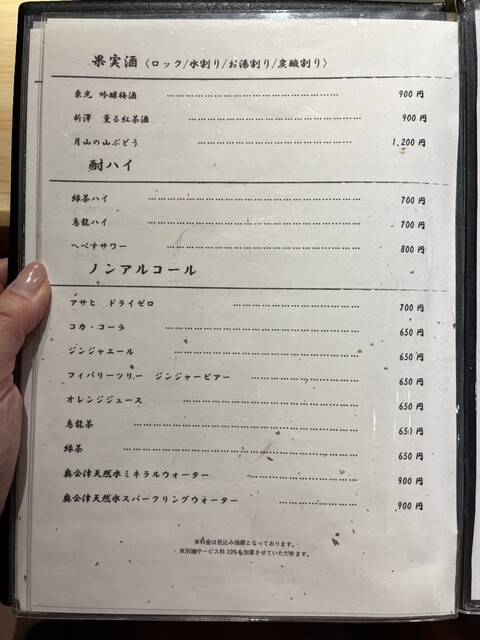 果実酒〈ロック/水割り/お湯割り/炭酸割り〉
東光 吟醸梅酒 ……………………………………… 900円
新澤 薫る紅茶酒 ……………………………………… 900円
月山の山ぶどう ……………………………………… 1,200円
酎ハイ
緑茶ハイ ……………………………………… 700円
烏龍ハイ ……………………………………… 700円
へべすサワー ……………………………………… 800円
ノンアルコール
アサヒ ドライゼロ ……………………………… 700円
コカ・コーラ ……………………………………… 650円
ジンジャエール ……………………………………… 650円
フィバリーツリー ジンジャービアー ……………………… 650円
オレンジジュース ……………………………………… 650円
烏龍茶 ……………………………………… 650円
緑茶 ……………………………………… 650円
奥会津天然水ミネラルウォーター ……………………… 900円
奥会津天然水スパークリングウォーター ………………… 900円
※料金は税込み価額となっております。
※別途サービス料10%を加算させていただきます。